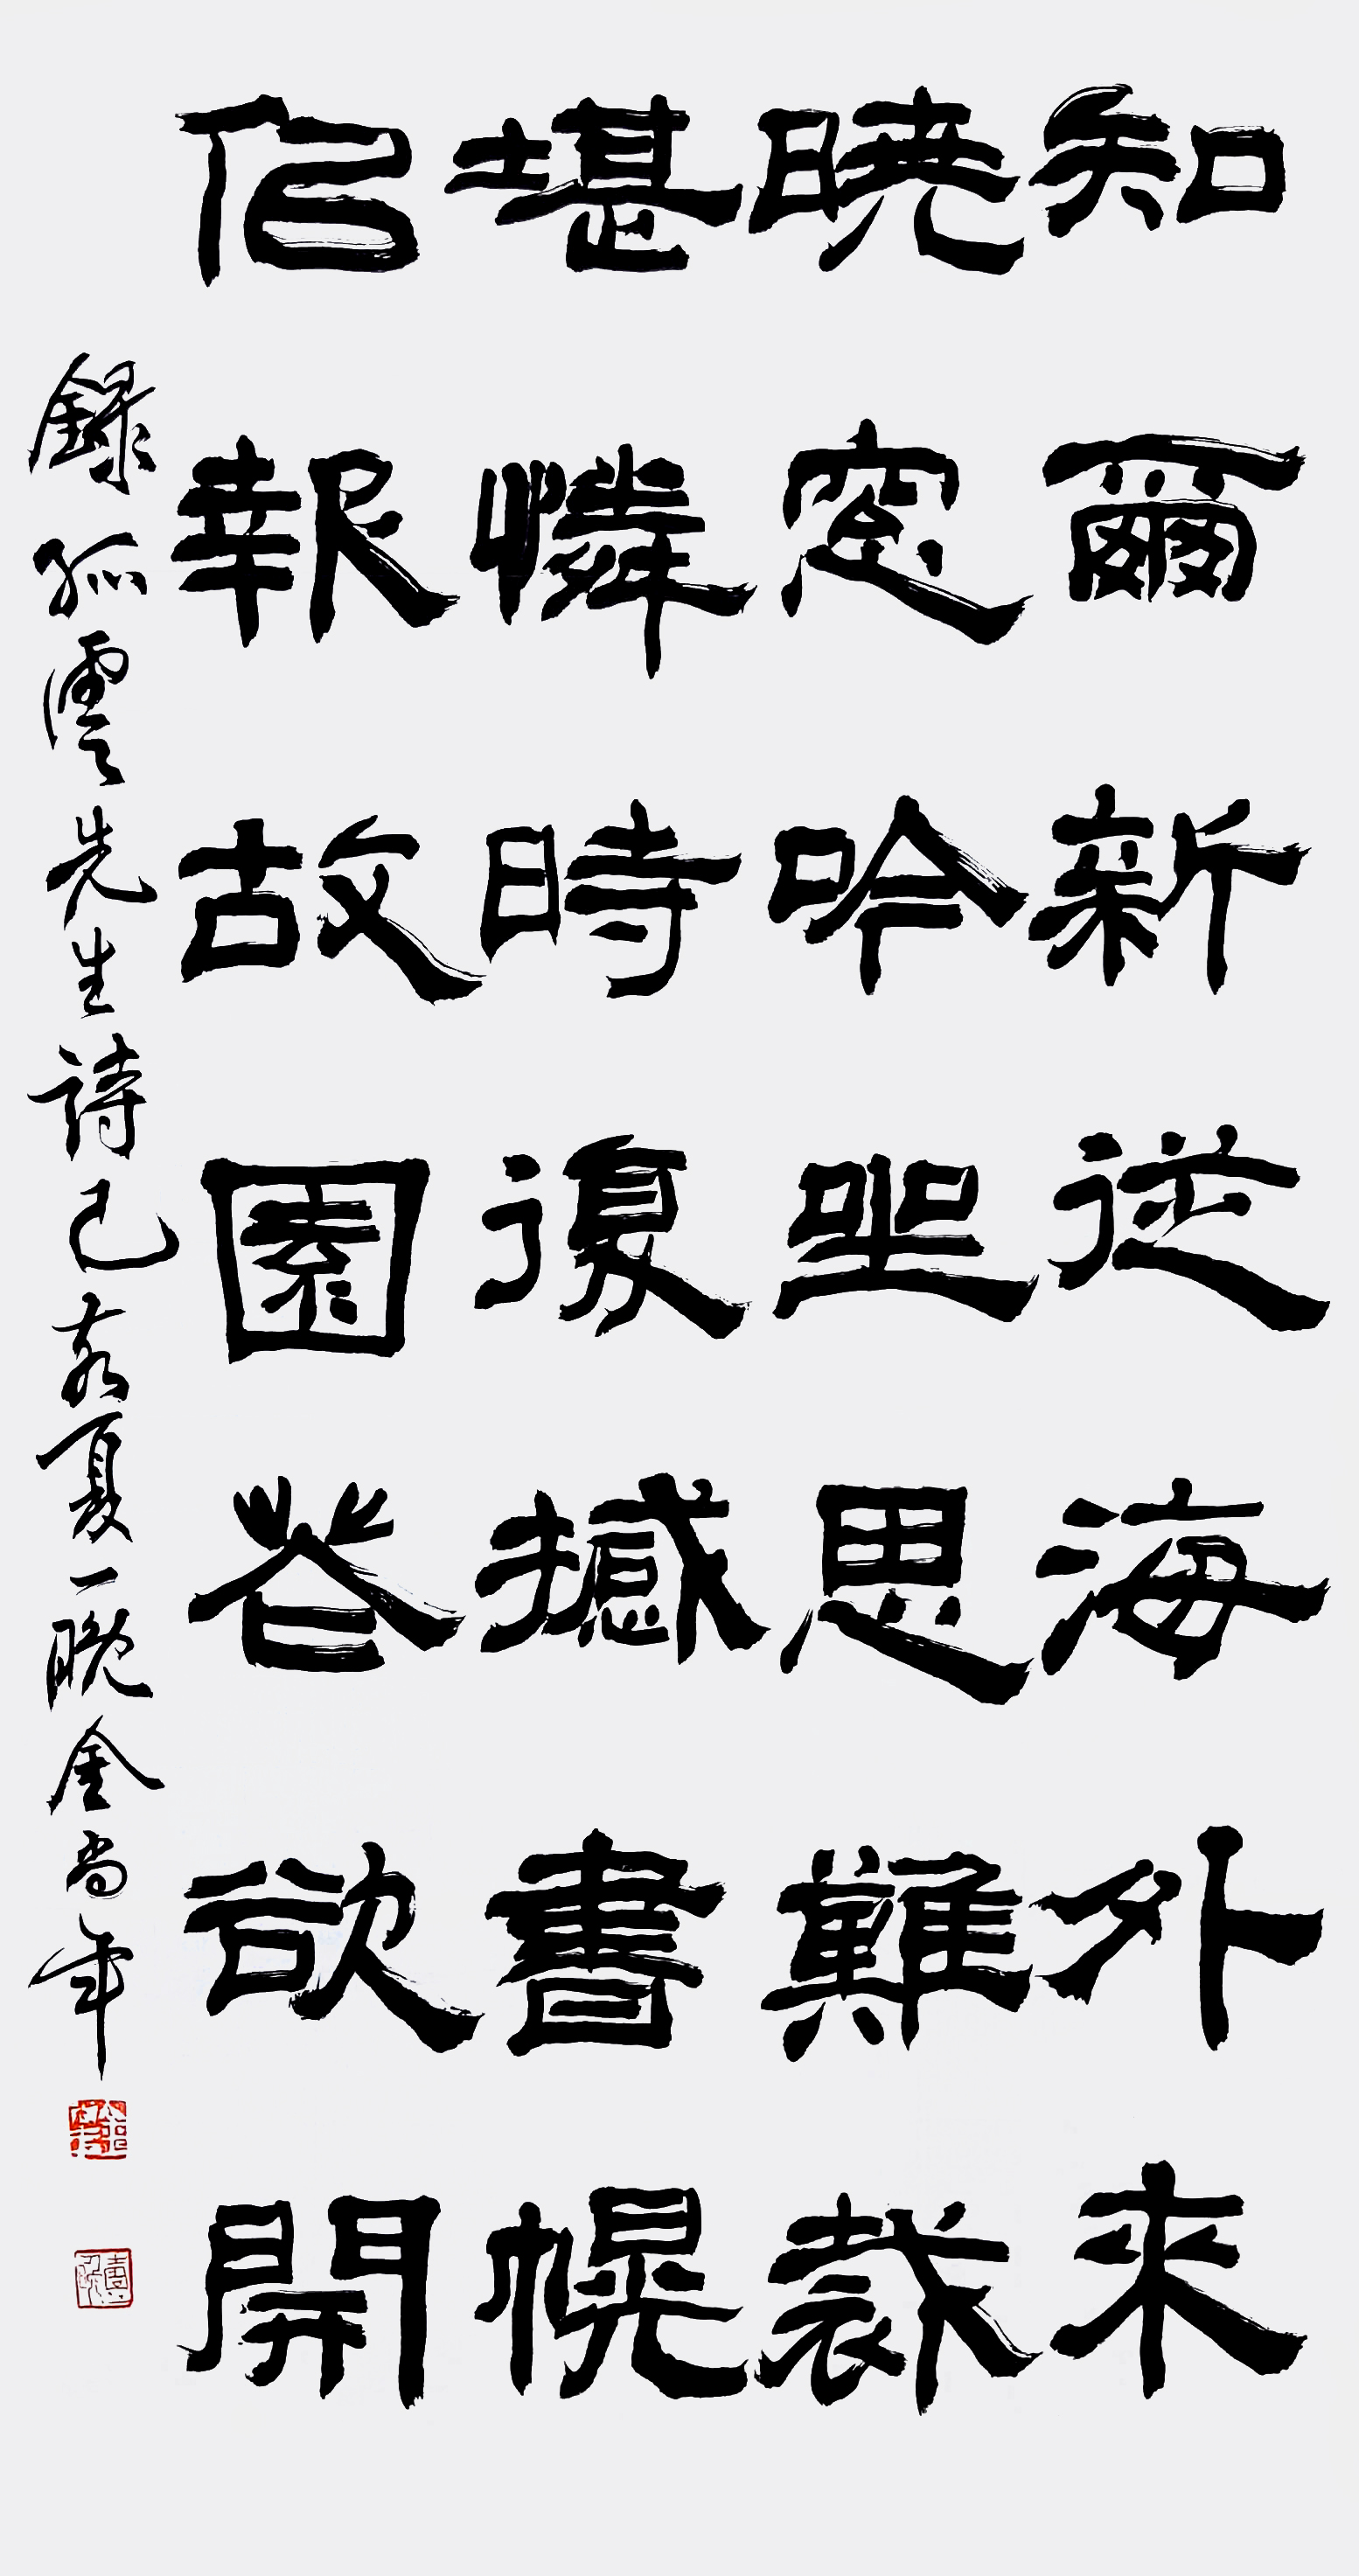 知爾新從海外來
曉窓吟坐思難裁
堪憐時復撼書幌
佀報故園花欲開
錄孤雲先生詩己亥夏一晚金尚年